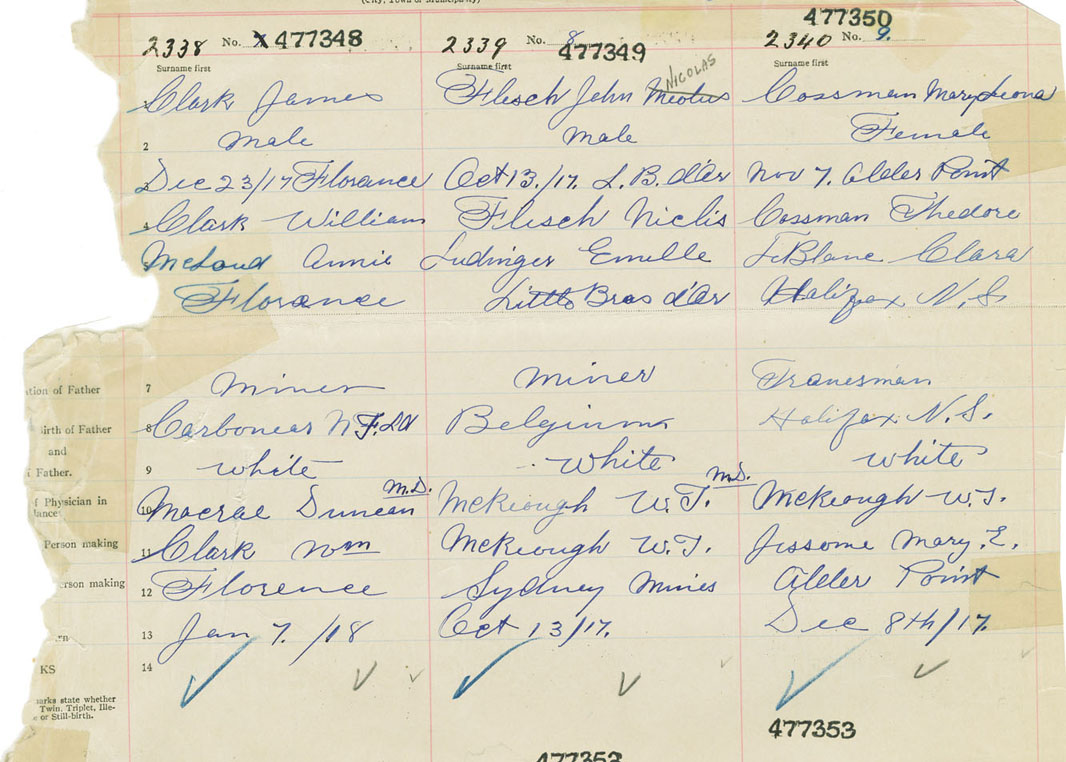 (City, Town or Municipality)
477350
2338 No. X 477348 2339 No. 8 477349 2340 No. 9.
Surname first Surname first Surname first
NICOLAS
Clark James Flesch John Cossman Mary Leona
2 male male Female
Dec 23/17 Florance Oct 13./17. L. B. d'Or Nov 7. Alder Point
4 Clark William Flesch Niclis Cossman Thedore
McLoud Annie Ludinger Emelle LeBlanc Clara
Florance Little Bras d'Or Halifax N.S.
tion of Father 7 miner miner
irth of Father 8 Carbonear N.F.LD Belginm Halifax N.S.
and
f Father. 9 white white white
f Physician in M.D. M.D.
tance 10 Macrae Duncan McKeough W.J. McKeough W.J.
Person making 11 Clark Wm McKeough W.J. Jessome Mary. E.
erson making 12 Florence Sydney Mines Alder Point
rn 13 Jan 7. /18 Oct 13/17. Dec 8th/17.
KS 14
arks state whether
Twin, Triplet, Ille-
e or Still-birth.
477353
477353